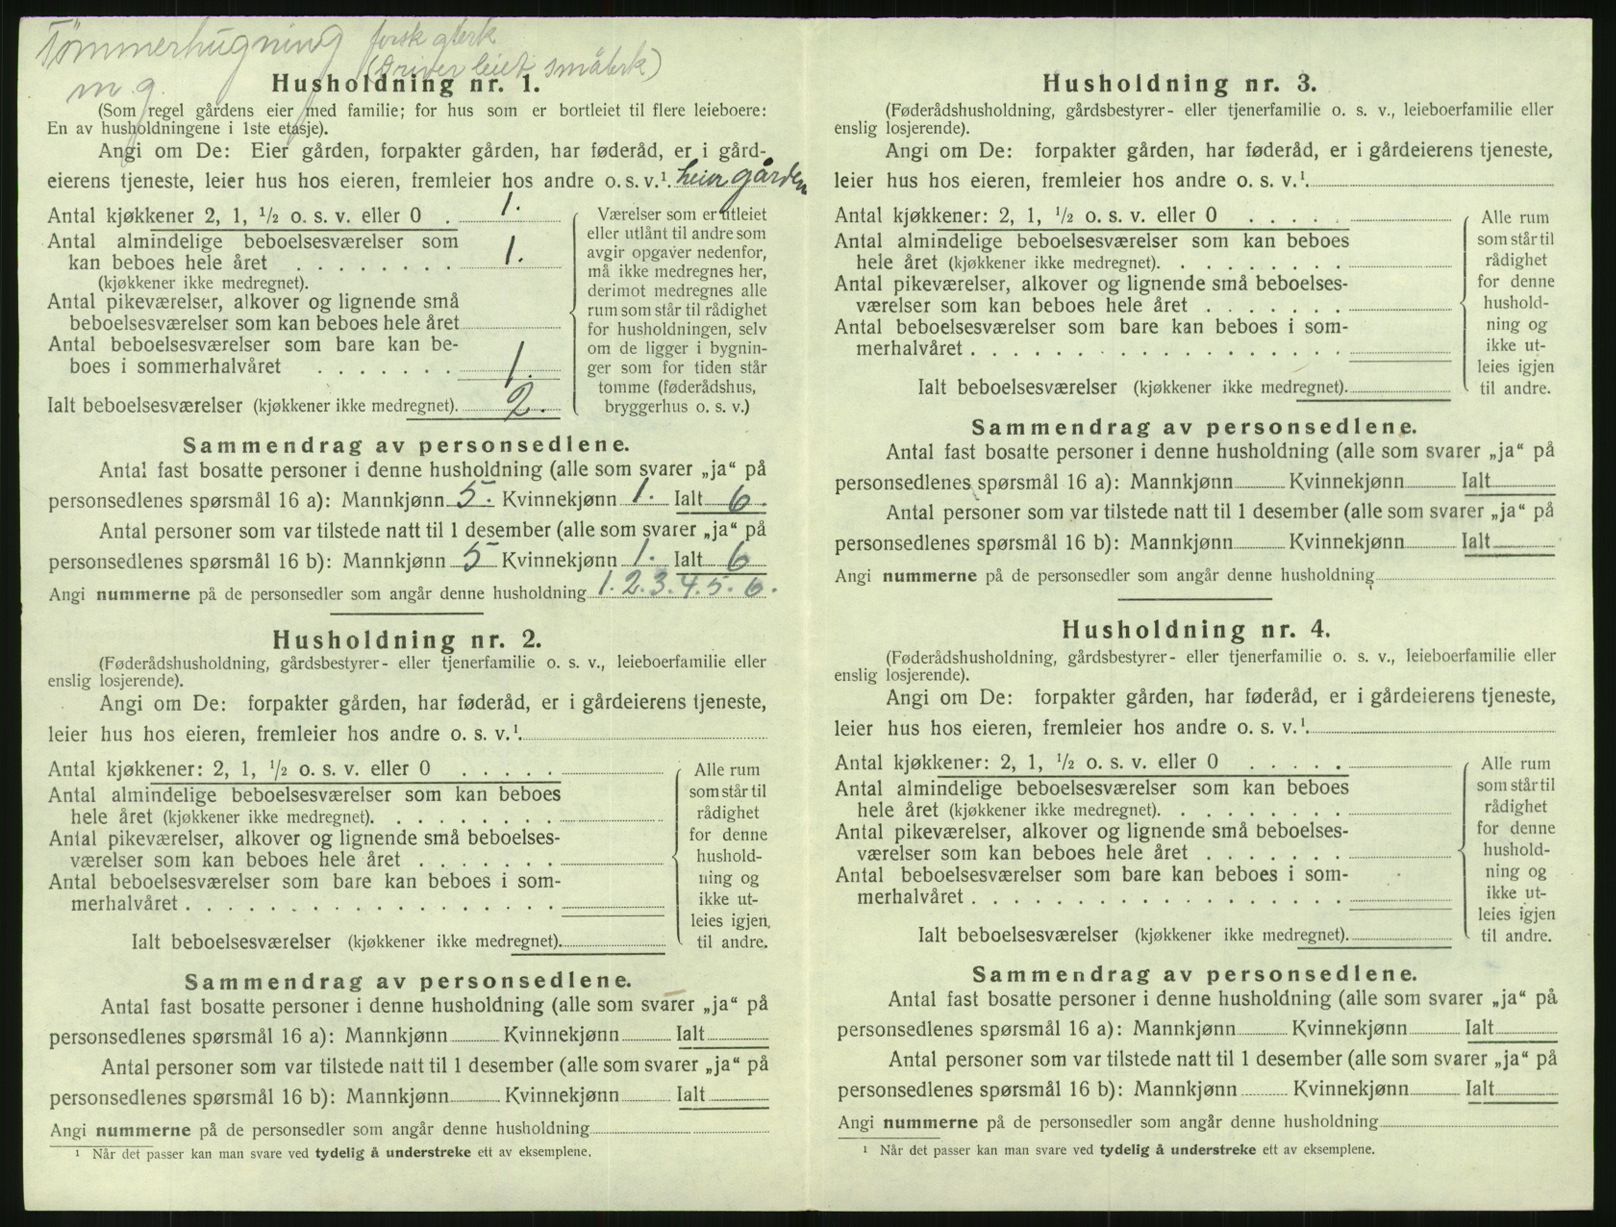 Tømmerhugning
m. g.
Husholdning nr. 1.
(Som regel gårdens eier med familie; for hus som er bortleiet til flere leieboere:
En av husholdningene i 1ste etasje).
Angi om De: Eier gården, forpakter gården, har føderåd, er i gård-
eierens tjeneste, leier hus hos eieren, fremleier hos andre o. s. v.¹. leier gården
Antal kjøkkener 2, 1, ½ o. s. v. eller 0 . 1.
Antal almindelige beboelsesværelser som
kan beboes hele året . . . . . . . . 1.
(kjøkkener ikke medregnet).
Antal pikeværelser, alkover og lignende små
beboelsesværelser som kan beboes hele året
Antal beboelsesværelser som bare kan be-
boes i sommerhalvåret . . . . . . . 1.
Ialt beboelsesværelser (kjøkkener ikke medregnet). 2.
Værelser som er utleiet
eller utlånt til andre som
avgir opgaver nedenfor,
må ikke medregnes her,
derimot medregnes alle
rum som står til rådighet
for husholdningen, selv
om de ligger i bygnin-
ger som for tiden står
tomme (føderådshus,
bryggerhus o. s. v.)
Sammendrag av personsedlene.
Antal fast bosatte personer i denne husholdning (alle som svarer „ja“ på
personsedlenes spørsmål 16 a): Mannkjønn 5. Kvinnekjønn 1. Ialt 6.
Antal personer som var tilstede natt til 1 desember (alle som svarer „ja“ på
personsedlenes spørsmål 16 b): Mannkjønn 5 Kvinnekjønn 1. Ialt 6
Angi nummerne på de personsedler som angår denne husholdning 1. 2. 3. 4. 5. 6.
Husholdning nr. 2.
(Føderådshusholdning, gårdsbestyrer- eller tjenerfamilie o. s. v., leieboerfamilie eller
enslig losjerende).
Angi om De: forpakter gården, har føderåd, er i gårdeierens tjeneste,
leier hus hos eieren, fremleier hos andre o. s. v.¹.
Antal kjøkkener: 2, 1, ½ o. s. v. eller 0 . . . . .
Antal almindelige beboelsesværelser som kan beboes
hele året (kjøkkener ikke medregnet). . . . . . . . .
Antal pikeværelser, alkover og lignende små beboelses-
værelser som kan beboes hele året . . . . . . .
Antal beboelsesværelser som bare kan beboes i som-
merhalvåret . . . . . . . . . . . . . . . . . .
Ialt beboelsesværelser (kjøkkener ikke medregnet).
Alle rum
som står til
rådighet
for denne
hushold-
ning og
ikke ut-
leies igjen
til andre.
Sammendrag av personsedlene.
Antal fast bosatte personer i denne husholdning (alle som svarer „ja“ på
personsedlenes spørsmål 16 a): Mannkjønn Kvinnekjønn Ialt
Antal personer som var tilstede natt til 1 desember (alle som svarer „ja“ på
personsedlenes spørsmål 16 b): Mannkjønn Kvinnekjønn Ialt
Angi nummerne på de personsedler som angår denne husholdning
¹ Når det passer kan man svare ved tydelig å understreke ett av eksemplene.
Husholdning nr. 3.
(Føderådshusholdning, gårdsbestyrer- eller tjenerfamilie o. s. v., leieboerfamilie eller
enslig losjerende).
Angi om De: forpakter gården, har føderåd, er i gårdeierens tjeneste,
leier hus hos eieren, fremleier hos andre o. s. v.¹.
Antal kjøkkener: 2, 1, ½ o. s. v. eller 0 . . . . .
Antal almindelige beboelsesværelser som kan beboes
hele året (kjøkkener ikke medregnet). . . . . . . . .
Antal pikeværelser, alkover og lignende små beboelses-
værelser som kan beboes hele året . . . . . . .
Antal beboelsesværelser som bare kan beboes i som-
merhalvåret . . . . . . . . . . . . . . . . . .
Ialt beboelsesværelser (kjøkkener ikke medregnet).
Alle rum
som står til
rådighet
for denne
hushold-
ning og
ikke ut-
leies igjen
til andre.
Sammendrag av personsedlene.
Antal fast bosatte personer i denne husholdning (alle som svarer „ja“ på
personsedlenes spørsmål 16 a): Mannkjønn Kvinnekjønn Ialt
Antal personer som var tilstede natt til 1 desember (alle som svarer „ja“ på
personsedlenes spørsmål 16 b): Mannkjønn Kvinnekjønn Ialt
Angi nummerne på de personsedler som angår denne husholdning
Husholdning nr. 4.
(Føderådshusholdning, gårdsbestyrer- eller tjenerfamilie o. s. v., leieboerfamilie eller
enslig losjerende).
Angi om De: forpakter gården, har føderåd, er i gårdeierens tjeneste,
leier hus hos eieren, fremleier hos andre o. s. v.¹.
Antal kjøkkener: 2, 1, ½ o. s. v. eller 0 . . . . .
Antal almindelige beboelsesværelser som kan beboes
hele året (kjøkkener ikke medregnet). . . . . . . . .
Antal pikeværelser, alkover og lignende små beboelses-
værelser som kan beboes hele året . . . . . . .
Antal beboelsesværelser som bare kan beboes i som-
merhalvåret . . . . . . . . . . . . . . . . . .
Ialt beboelsesværelser (kjøkkener ikke medregnet).
Alle rum
som står til
rådighet
for denne
hushold-
ning og
ikke ut-
leies igjen
til andre.
Sammendrag av personsedlene.
Antal fast bosatte personer i denne husholdning (alle som svarer „ja“ på
personsedlenes spørsmål 16 a): Mannkjønn Kvinnekjønn Ialt
Antal personer som var tilstede natt til 1 desember (alle som svarer „ja“ på
personsedlenes spørsmål 16 b): Mannkjønn Kvinnekjønn Ialt
Angi nummerne på de personsedler som angår denne husholdning
¹ Når det passer kan man svare ved tydelig å understreke ett av eksemplene.